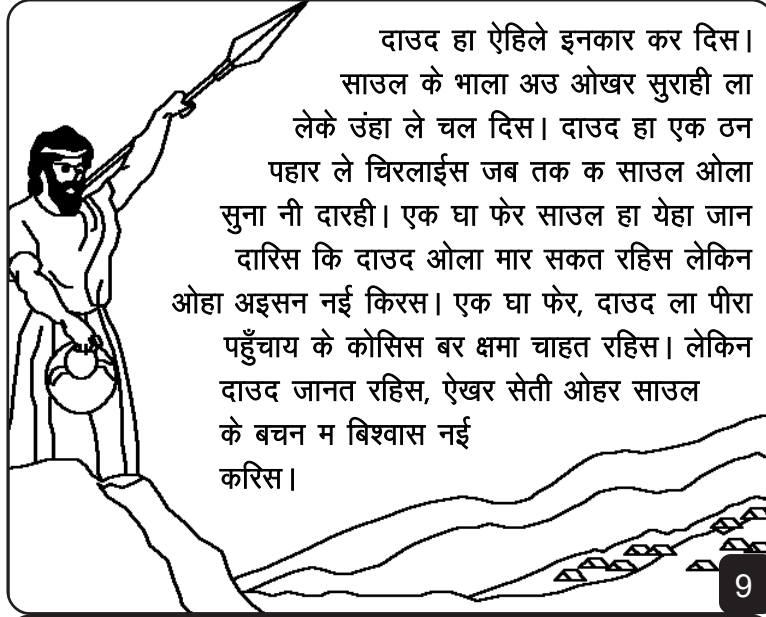 दाउद हा ऐहिले इनकार कर दिस।
साउल के भाला अउ ओखर सुराही ला
लेके उंहा ले चल दिस। दाउद हा एक ठन
पहार ले चिरलाईस जब तक क साउल ओला
सुना नी दारही। एक घा फेर साउल हा येहा जान
दारिस कि दाउद ओला मार सकत रहिस लेकिन
ओहा अइसन नई किरस। एक घा फेर, दाउद ला पीरा
पहुँचाय के कोसिस बर क्षमा चाहत रहिस। लेकिन
दाउद जानत रहिस, ऐखर सेती ओहर साउल
के बचन म बिश्वास नई
करिस।
9